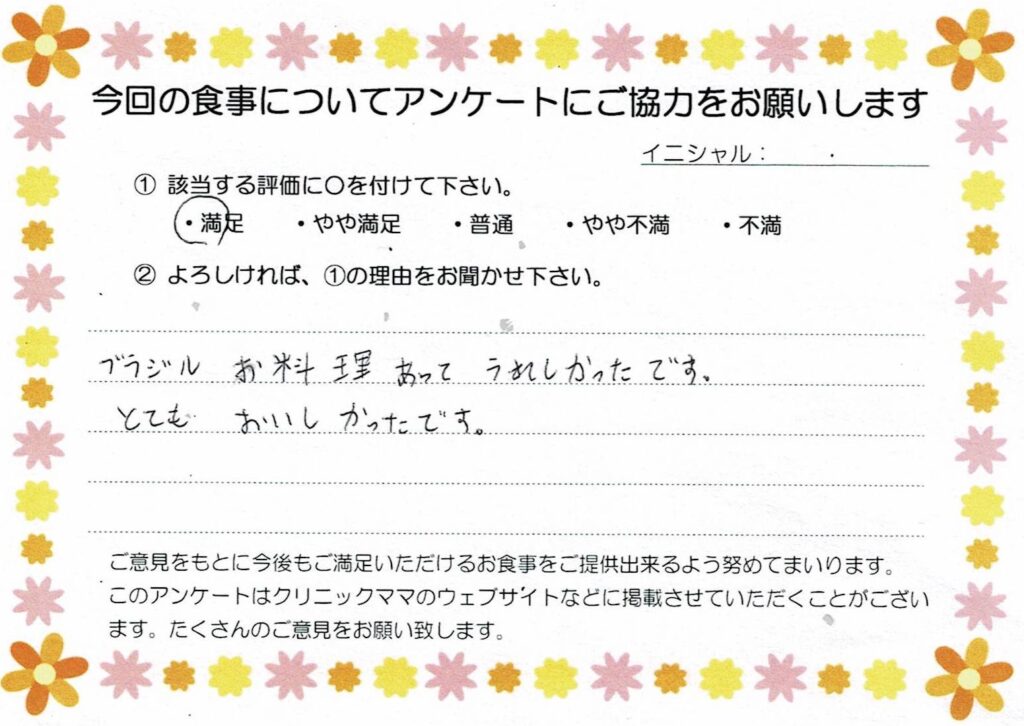 今回の食事についてアンケートにご協力をお願いします
イニシャル： ・
① 該当する評価に〇を付けて下さい。
・満足 ・やや満足 ・普通 ・やや不満 ・不満
② よろしければ、①の理由をお聞かせ下さい。
ブラジル お料理 あって うれしかったです。
とても おいしかったです。
ご意見をもとに今後もご満足いただけるお食事をご提供出来るよう努めてまいります。
このアンケートはクリニックママのウェブサイトなどに掲載させていただくことがござい
ます。たくさんのご意見をお願い致します。